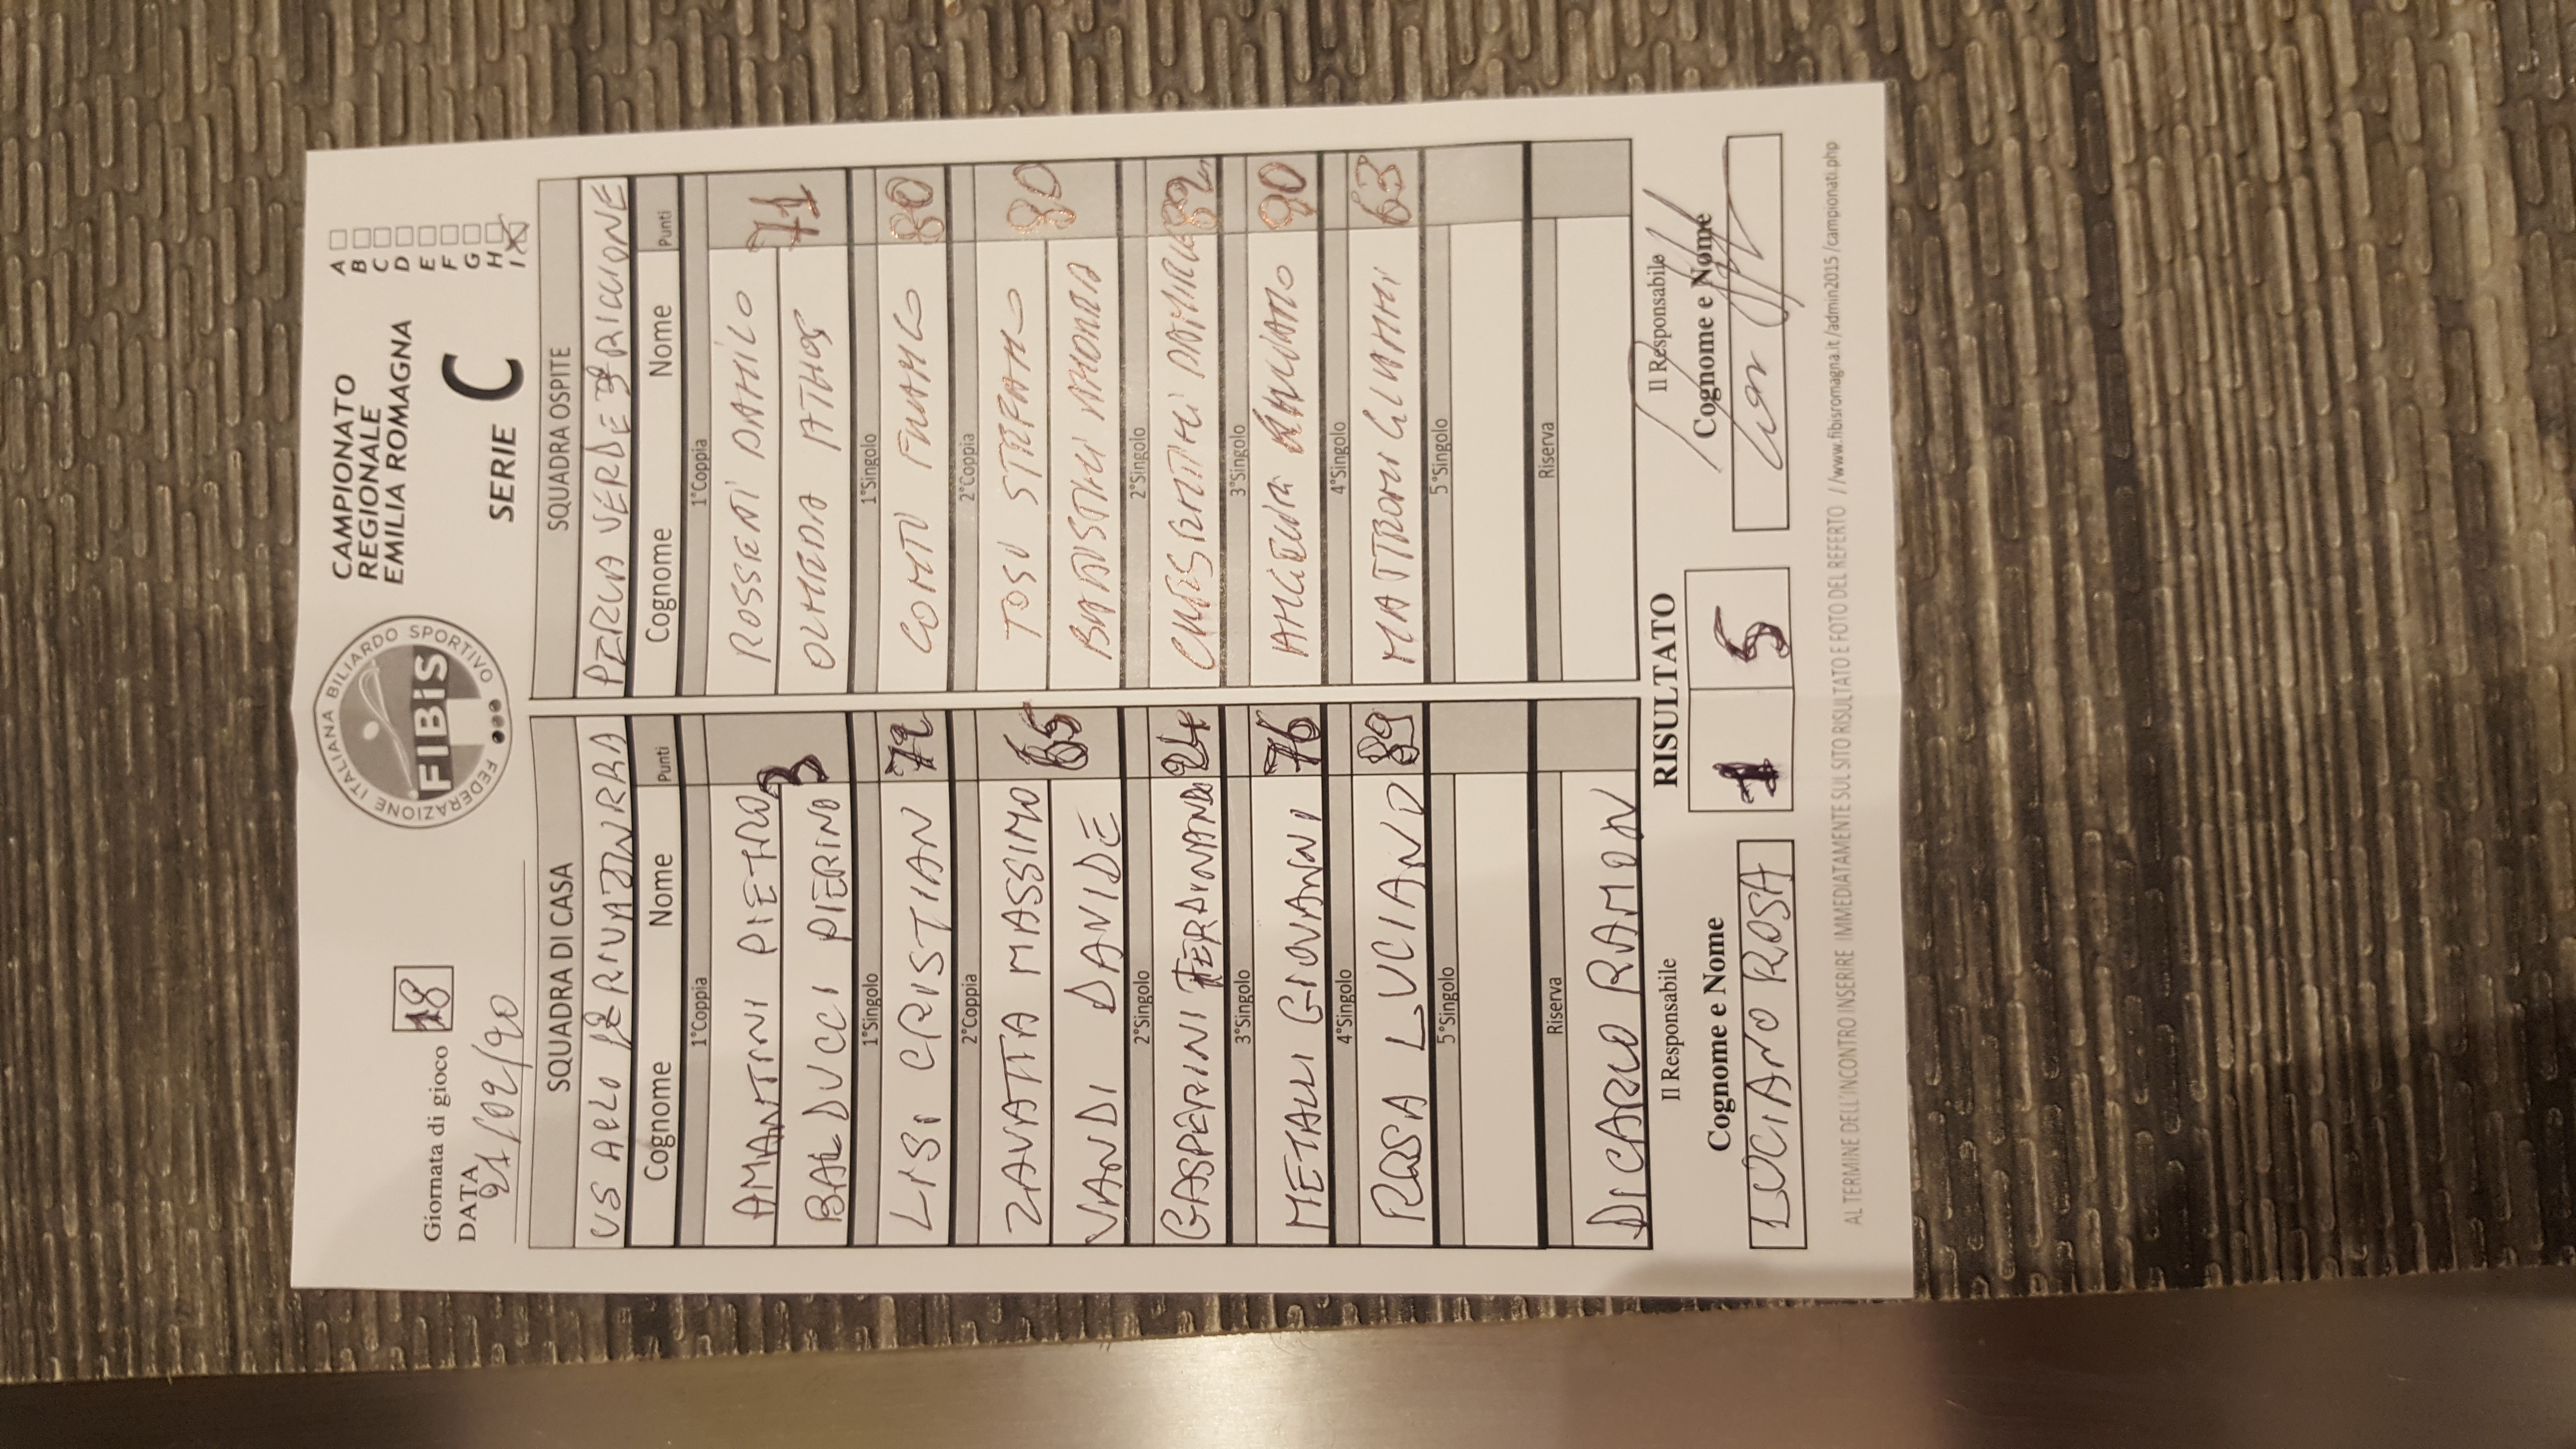 Giornata di gioco 18
DATA
21/02/20
FEDERAZIONE ITALIANA BILIARDO SPORTIVO
FIBiS
CAMPIONATO
REGIONALE
EMILIA ROMAGNA
SERIE C
A
B
C
D
E
F
G
H
I X
SQUADRA DI CASA SQUADRA OSPITE
US PERLA VERDE 3 RICCIONE
Cognome Nome Punti Cognome Nome Punti
1°Coppia 1°Coppia
AMANTINI PIETRO DANILO
BALDUCCI PIERINO 3 OLMEDA ATHOS 71
1°Singolo 1°Singolo
LISI CRISTIAN 72 CONTI 80
2°Coppia 2°Coppia
ZAVATTA MASSIMO 65 TOSI STEFANO 80
VANDI DAVIDE
2°Singolo 2°Singolo
GASPERINI FERDINANDO 24
3°Singolo 3°Singolo
METALLI GIOVANNI 76 90
4°Singolo 4°Singolo
ROSA LUCIANO 89 MATTEONI GIANNI 63
5°Singolo 5°Singolo
Riserva Riserva
DI CARLO RAMON
Il Responsabile RISULTATO Il Responsabile
Cognome e Nome 1 5 Cognome e Nome
LUCIANO ROSA
AL TERMINE DELL'INCONTRO INSERIRE IMMEDIATAMENTE SUL SITO RISULTATO E FOTO DEL REFERTO //www.fibisromagna.it/admin2015/campionati.php